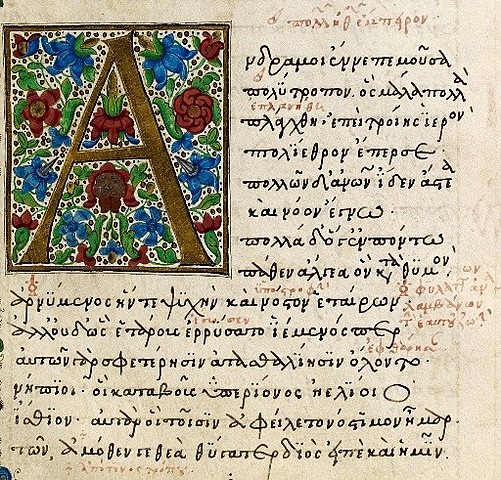 Ἄνδρα μοι ἔννεπε μοῦσα
πολύτροπον· ὃς μάλα πολλὰ
ἐπλανήθη
πλάγχθη· ἐπεὶ τροίης ἱερὸν
πτολίεθρον ἔπερσε·
πολλῶν δ' ἀνθρώπων ἴδεν ἄστεα
καὶ νόον ἔγνω·
πολλὰ δ' ὅγ' ἐν πόντῳ
πάθεν ἄλγεα ὃν κατὰ θυμὸν·
ἀρνύμενος ἥν τε ψυχὴν καὶ νόστον ἑταίρων·
ἀλλ' οὐδ' ὣς ἑτάρους ἐρρύσατο ἱέμενός περ·
αὐτῶν γὰρ σφετέρῃσιν ἀτασθαλίῃσιν ὄλοντο·
νήπιοι· οἳ κατὰ βοῦς ὑπερίονος ἠελίοιο
ἤσθιον· αὐτὰρ ὁ τοῖσιν ἀφείλετο νόστιμον ἦμαρ·
τῶν, ἁμόθεν γε θεὰ θύγατερ διὸς εἰπὲ καὶ ἡμῖν.